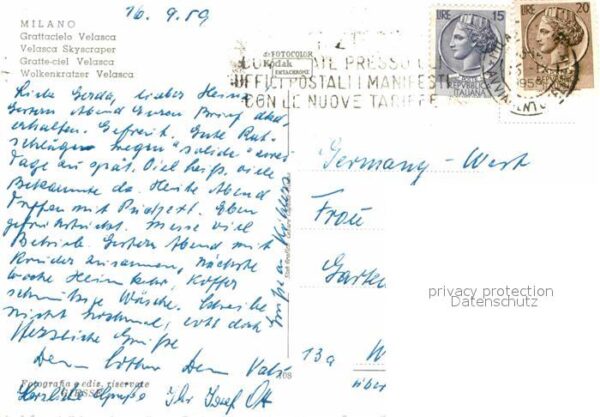 16.9.59
MILANO
Grattacielo Velasca
Velasca Skyscraper
Gratte-ciel Velasca
Wolkenkratzer Velasca
FOTOCOLOR
Kodak
EKTACHROME
LIRE 15
LIRE 20
REPUBBLICA ITALIANA
PRESSO
UFFICI POSTALI I MANIFESTI
CON LE NUOVE TARIFFE
1959
Liebe Gerda, lieber Heinz
Gestern Abend Euren Brief
erhalten. Gefreut. Gute Rat-
schläge wegen "solide"
Tage zu spät. Viel heiß, viele
Bekannte da. Heute Abend
Treffen mit Eben
gefrühstückt. Messe viel
Betrieb. Gestern Abend mit
zusammen, Nächste
Woche Heimkehr, Koffer
schmutzige Wäsche. Schreibe
nicht nochmal,
Herzliche Grüße
Dein Lothar Dein
Herzliche Grüße Ihr Josef Ott
Fotografia e diz. riservate
Germany-West
Frau
Garten
13a
über
privacy protection
Datenschutz